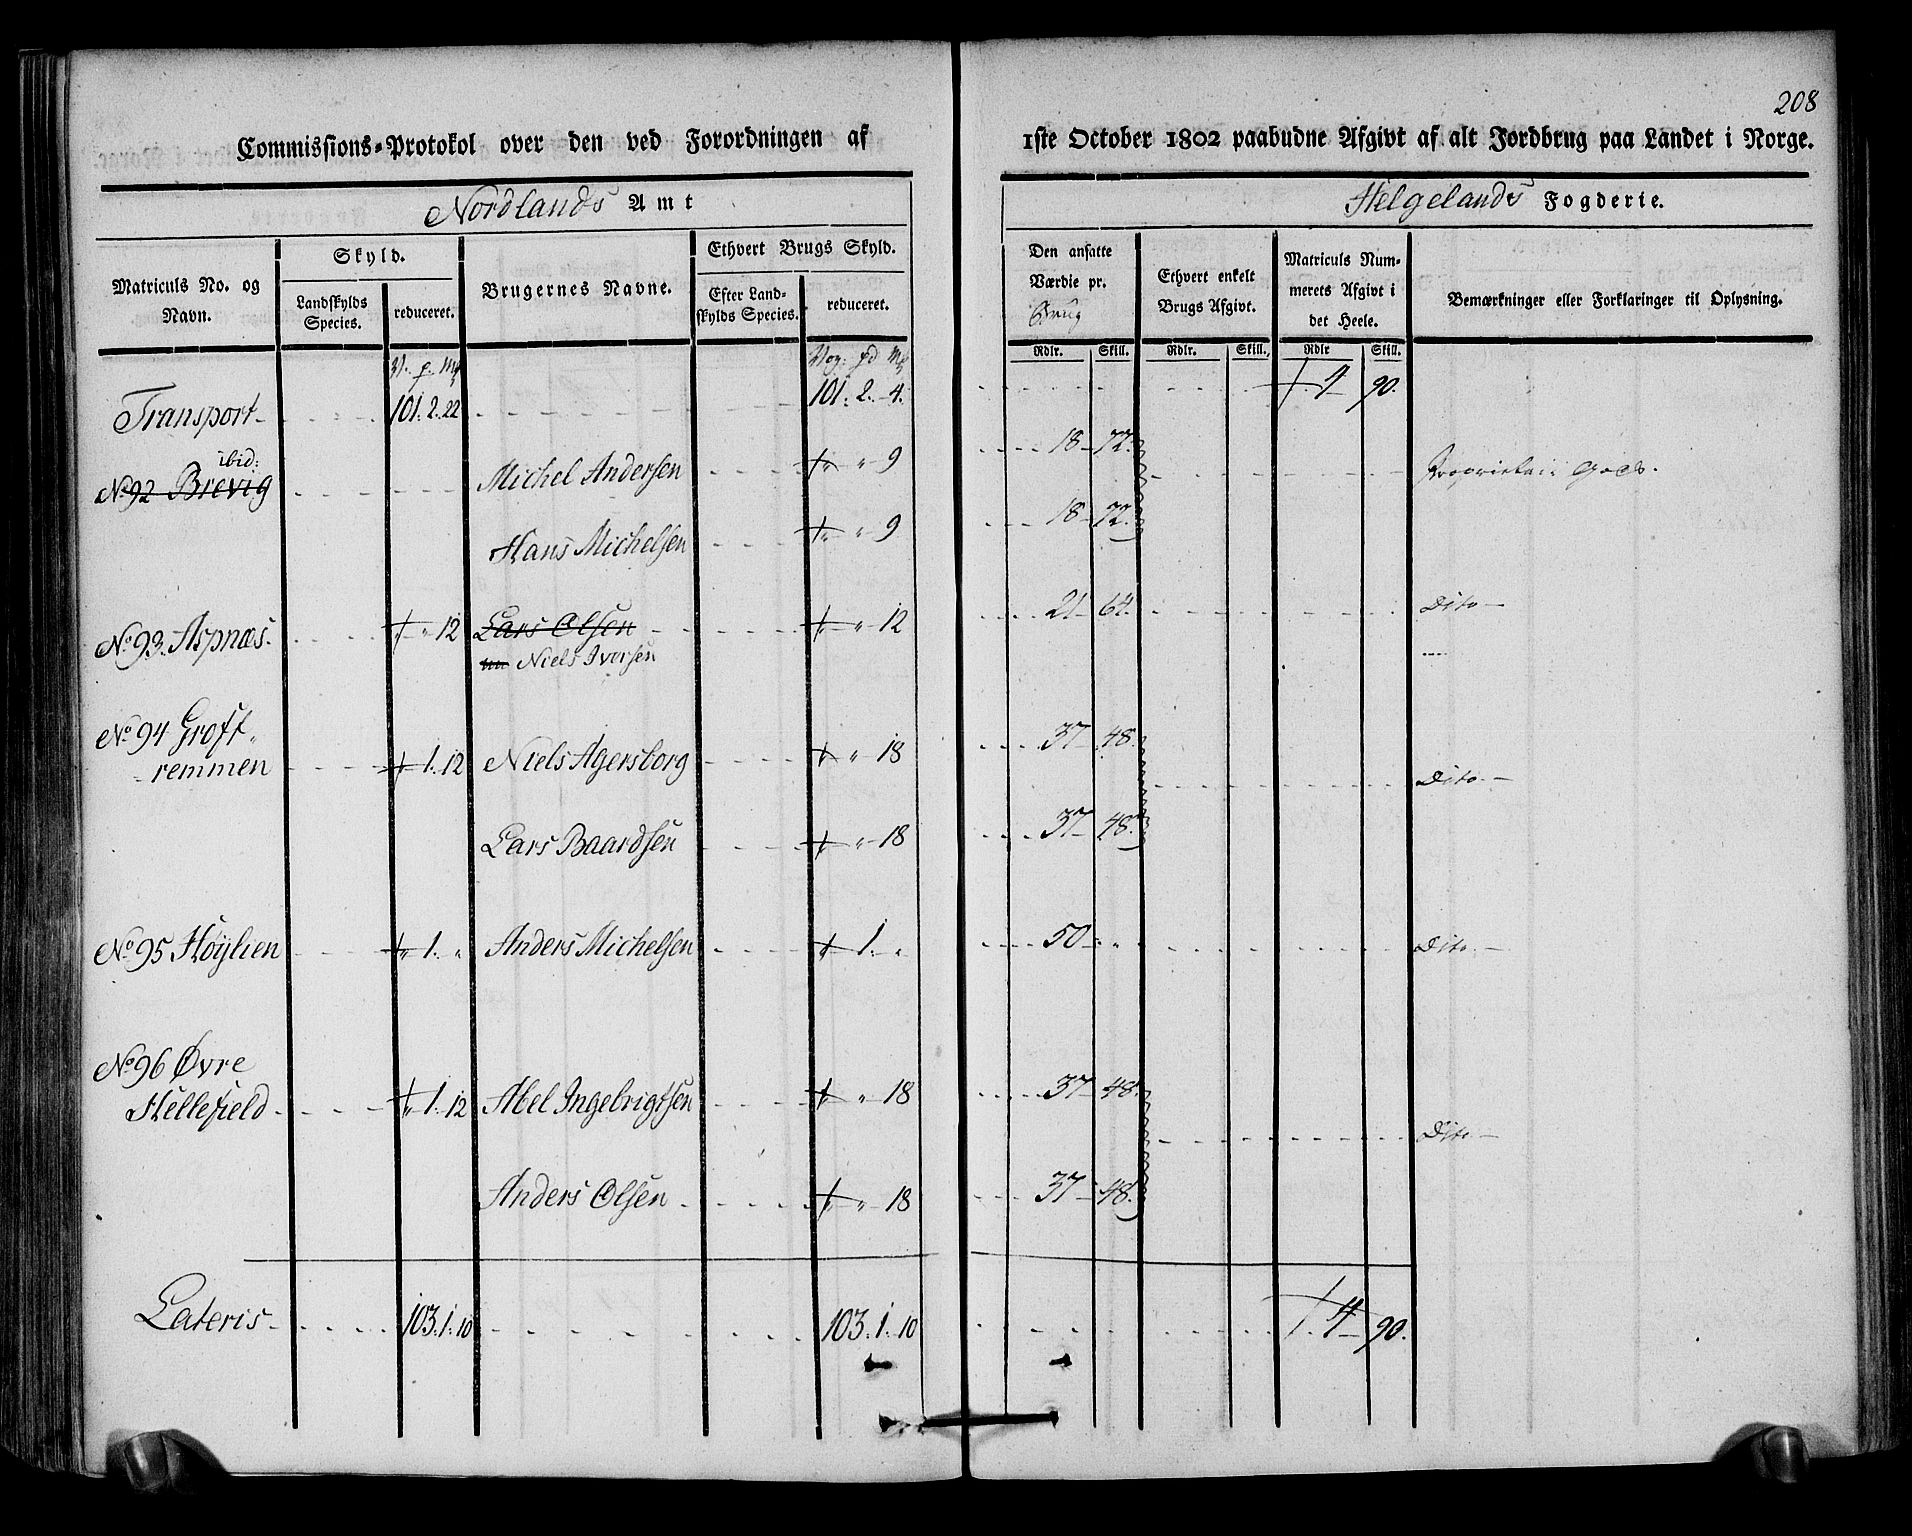 208
Commissions-Protokol over den ved Forordningen af 1ste October 1802 paabudne Afgivt af alt Jordbrug paa Landet i Norge.
Nordlands Amt
Helgelands Fogderie.
Matriculs No. og Navn.
Skyld.
Landskylds Species.
reduceret.
Brugernes Navne.
Ethvert Brugs Skyld.
Efter Landskylds Species.
reduceret.
Den ansatte Værdie pr. Brug
Ethvert enkelt Brugs Afgivt.
Matriculs Nummerets Afgivt i det Heele.
Bemærkninger eller Forklaringer til Oplysning.
Rdlr. Skill. Rdlr. Skill. Rdlr Skill.
V. p. Mk Vog: pd Mk
Transport 101. 2. 22 101. 2. 4. 4 90.
ibid:
No 92 Brevig Michel Andersen " 9 18 72. Proprietair Gods.
Hans Michelsen " 9 18 72.
No 93. Aspnæs. " 12 Lars Olsen " 12 21 64. Dito
Niels Iversen
No 94 Groft-
remmen 1. 12 Niels Agersborg " 18 37 48. Dito.
Lars Baardsen " 18 37 48.
No 95 Høylien 1. " Anders Michelsen 1. " 50 " Dito.
No 96 Øvre
Hellefield 1. 12 Abel Ingebrigtsen " 18 37 48. Dito
Anders Olsen " 18 37 48.
Lateris 103. 1. 10 103. 1. 10 4 90.